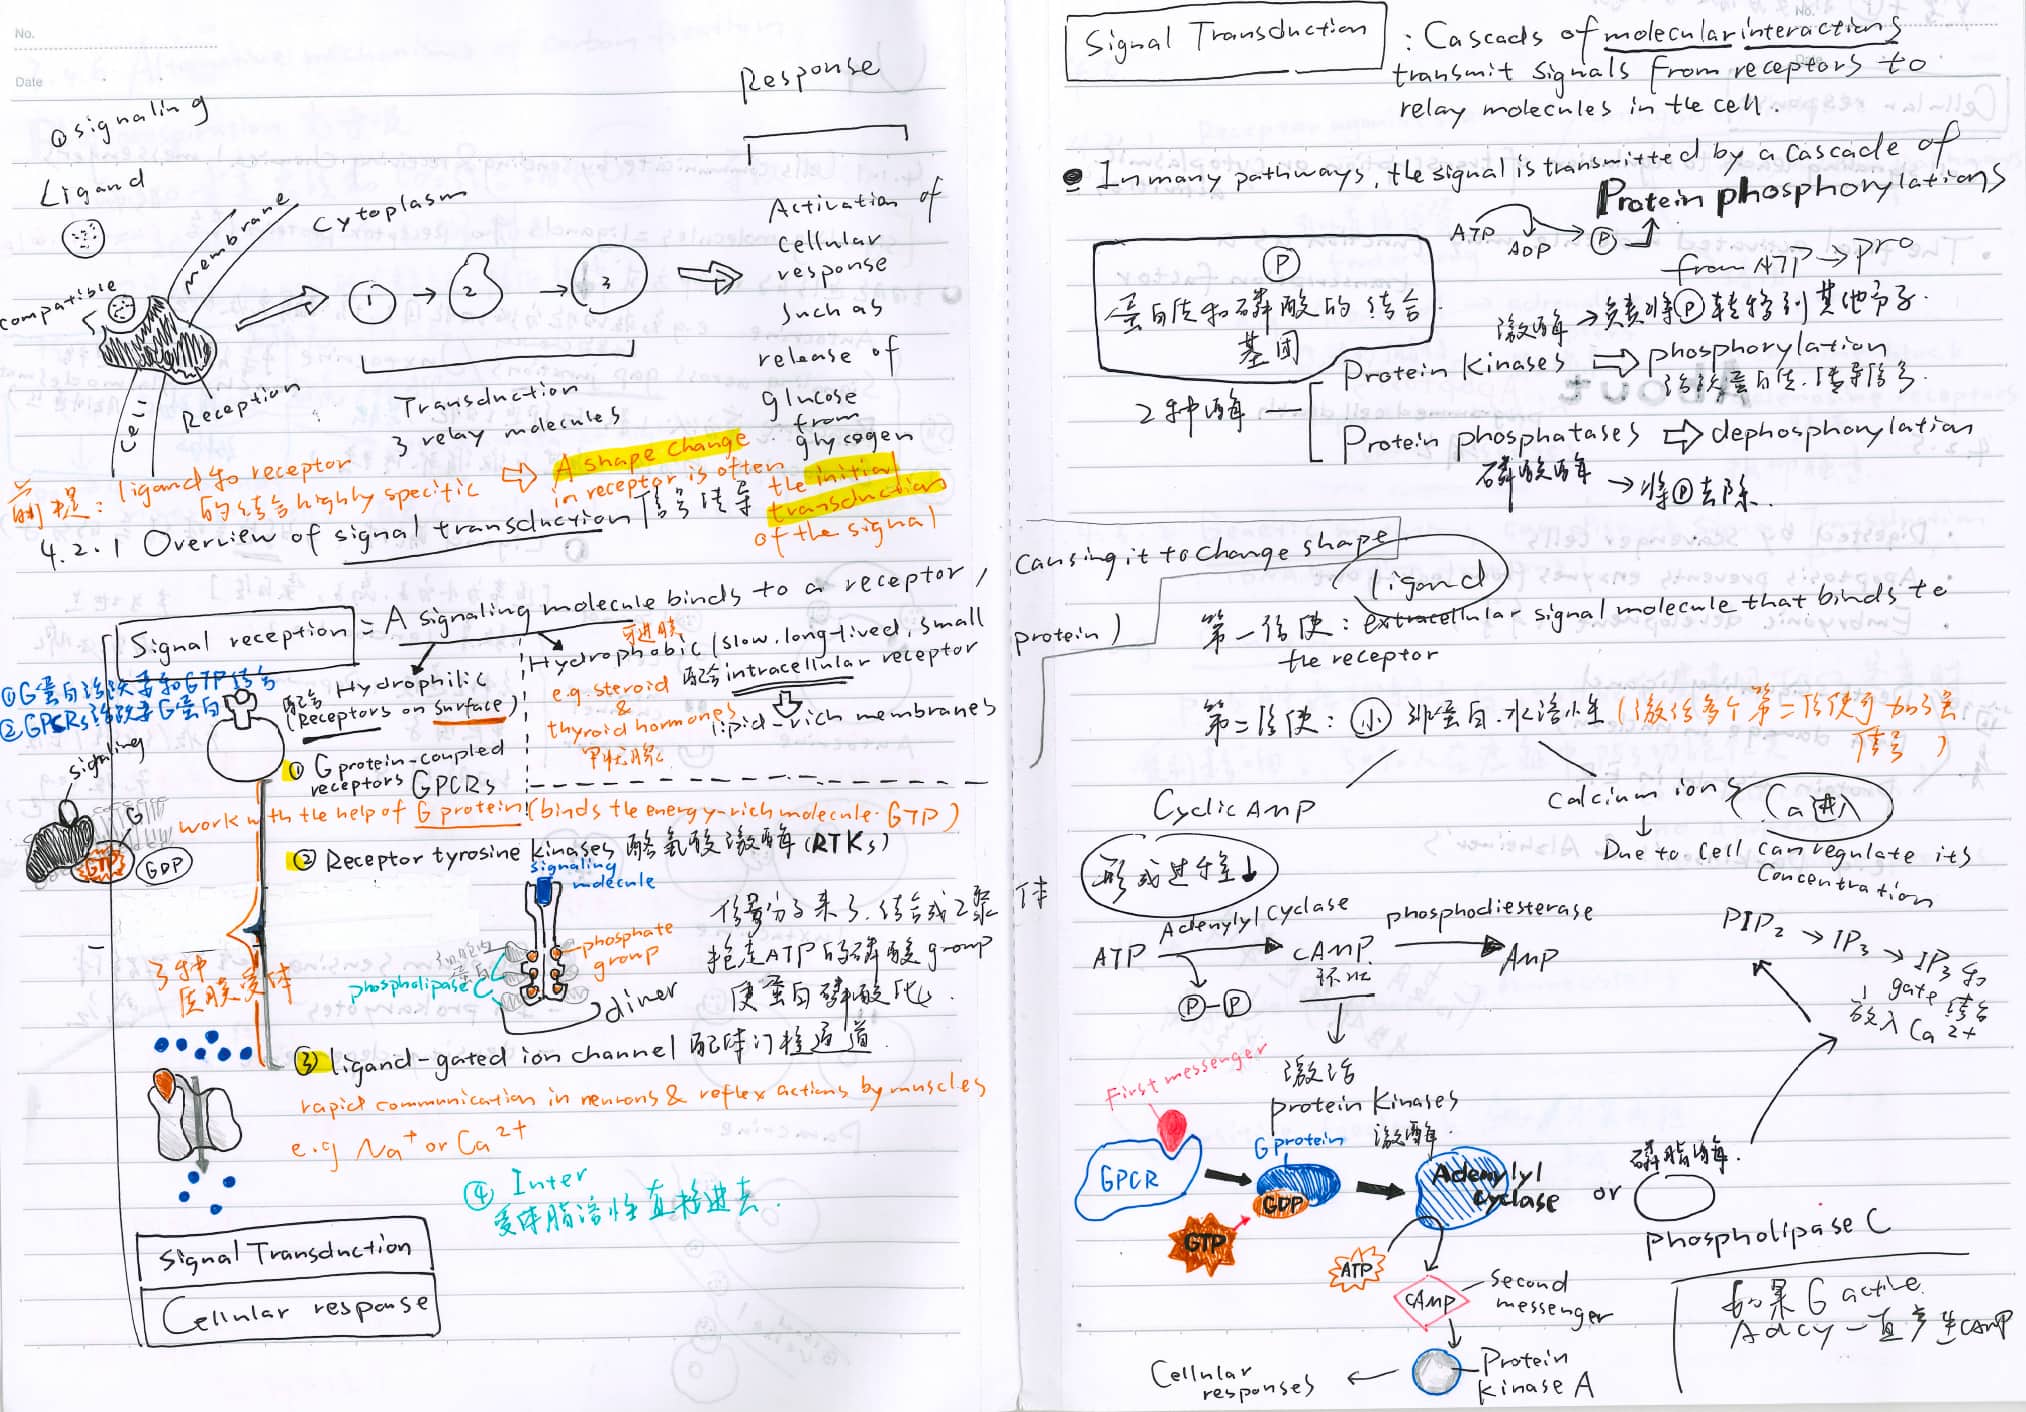 No.
Date
①signaling
Ligand
compatible
membrane
Cytoplasm
Cell
Reception
1
2
3
Transduction
3 relay molecules
Response
Activation of
cellular
response
such as
release of
glucose
from
glycogen
前提：ligand与receptor
的结合highly specific
A shape change
in receptor is often
the initial
transduction
of the signal
4.2.1 Overview of signal transduction 信号传导
Signal reception = A signaling molecule binds to a receptor,
causing it to change shape
Hydrophilic
配合
(Receptors on surface)
Hydrophobic (slow, long-lived, small
protein)
配合intracellular receptor
lipid-rich membranes
e.g. steroid
&
thyroid hormones
①G蛋白活跃要和GTP结合
②GPCRs活跃要G蛋白
signaling
G
GTP
GDP
① G protein-coupled
receptors GPCRs
work with the help of G protein (binds the energy-rich molecule GTP)
② Receptor tyrosine kinases 酪氨酸激酶 (RTKs)
signaling
molecule
phosphate
group
phospholipase C
dimer
信号分子来了，结合成二聚体
抢走ATP的磷酸group
使蛋白磷酸化。
3种
质膜受体
③ ligand-gated ion channel 配体门控通道
rapid communication in neurons & reflex actions by muscles
e.g Na+ or Ca2+
④ Inter
受体脂溶性直接进去
Signal Transduction
Cellular response
Signal Transduction
: Cascads of molecular interactions
transmit signals from receptors to
relay molecules in the cell.
● In many pathways, the signal is transmitted by a cascade of
Protein phosphorylations
ATP
ADP
P
from ATP → pro
P
蛋白质和磷酸的结合
基团
激酶 → 负责将P转移到其他分子
2种酶
Protein kinases ⇨ phosphorylation
活跃蛋白质，传导信号
Protein phosphatases ⇨ dephosphorylation
磷酸酶 → 将P去除
ligand
第一信使：extracellular signal molecule that binds to
the receptor
第二信使：小 非蛋白.水溶性 (激活多个第二信使可加强
信号)
Cyclic AMP
calcium ions
Ca进入
Due to cell can regulate its
concentration
形成过程↓
Adenylyl cyclase
phosphodiesterase
ATP
cAMP
AMP
P-P
激活
protein kinases
激酶
PIP2 → IP3 → IP3和
gate 结合
放入Ca2+
First messenger
GPCR
G protein
GDP
GTP
Adenylyl
cyclase
or
磷脂酶
phospholipase C
ATP
cAMP
second
messenger
Protein
kinase A
Cellular
responses
如果G active
Adcy一直产生cAMP